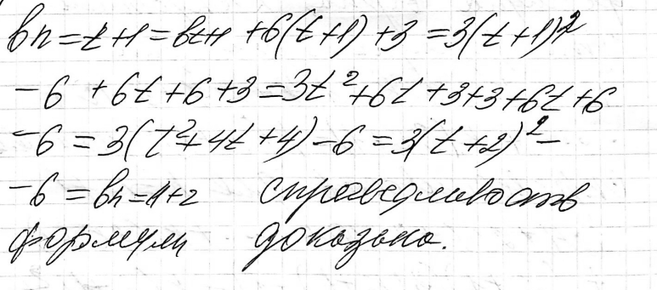 bn=t+1=bt+1+6(t+1)+3=3(t+1)²
-6+6t+6+3=3t²+6t+3+3+6t+6
-6=3(t²+4t+4)-6=3(t+2)²-
-6=bn=t+2 справедливость
формулы доказана.